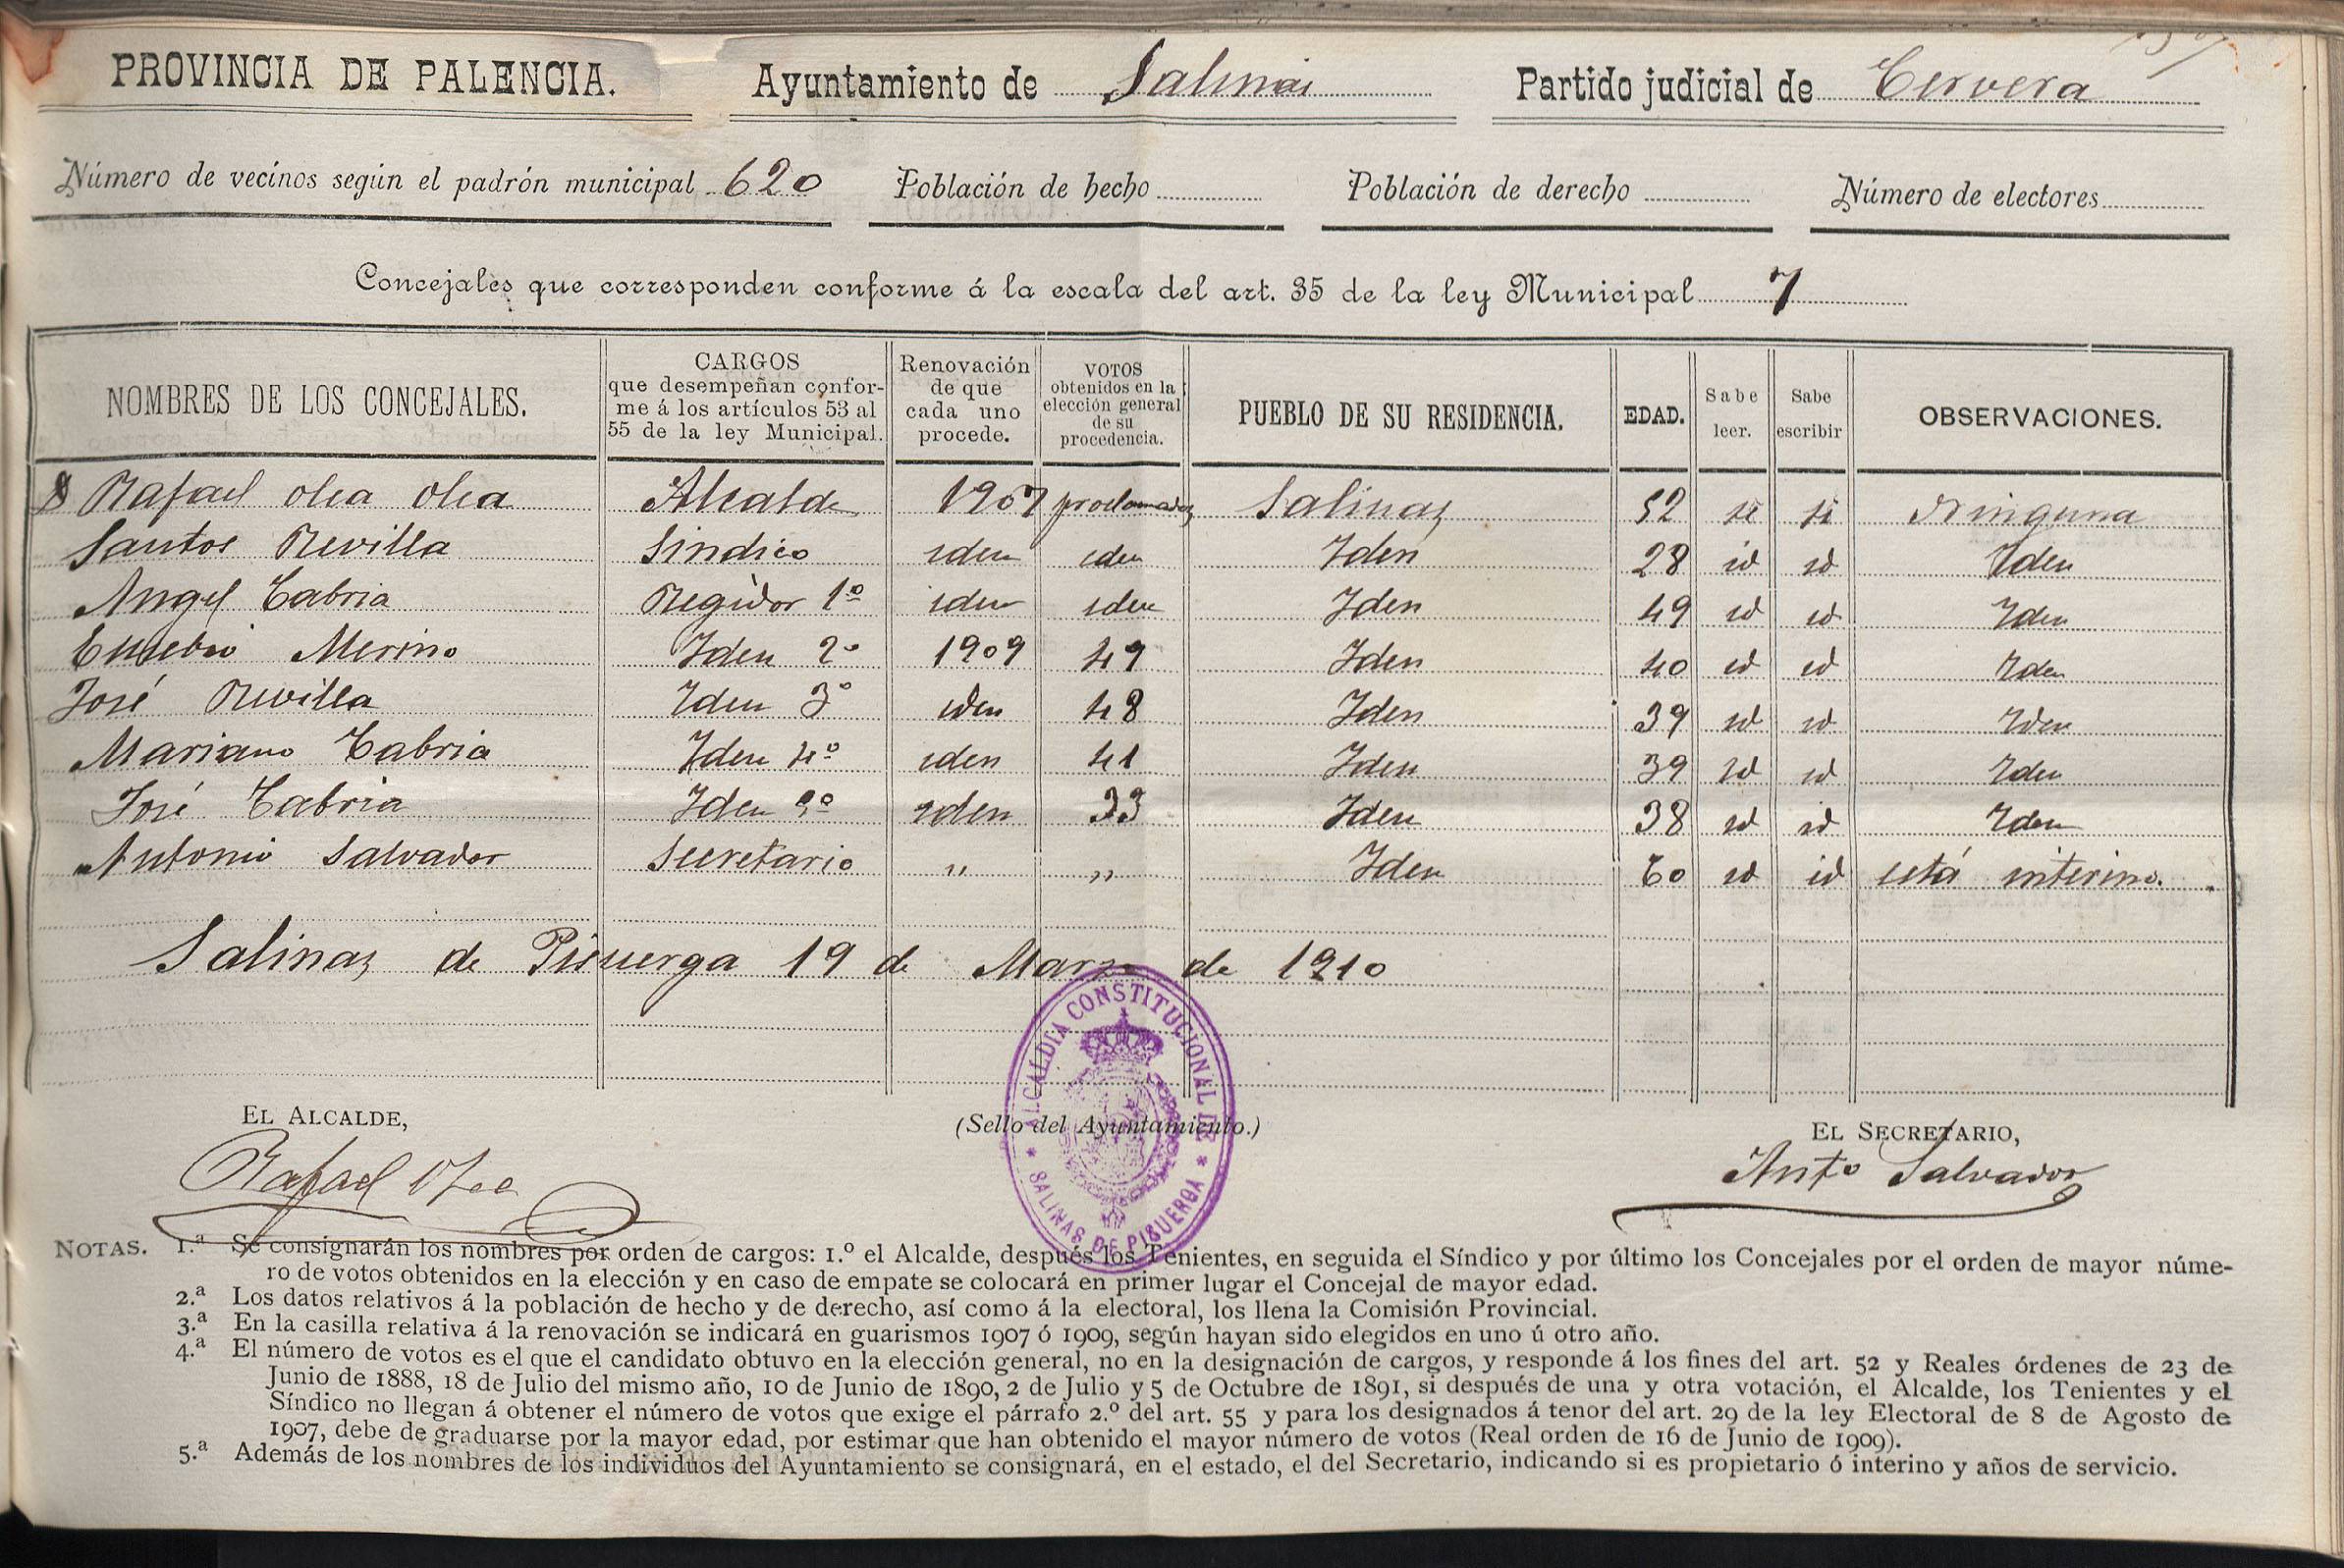 PROVINCIA DE PALENCIA. Ayuntamiento de Salinas Partido judicial de Cervera
Número de vecinos según el padrón municipal 620 Población de hecho Población de derecho Número de electores
Concejales que corresponden conforme á la escala del art. 35 de la ley Municipal 7
NOMBRES DE LOS CONCEJALES.
CARGOS
que desempeñan confor-
me á los artículos 53 al
55 de la ley Municipal.
Renovación
de que
cada uno
procede.
VOTOS
obtenidos en la
elección general
de su
procedencia.
PUEBLO DE SU RESIDENCIA.
EDAD.
Sabe
leer.
Sabe
escribir
OBSERVACIONES.
Rafael olea olea Alcalde 1907 proclamados Salinas 52 si si Ninguna
Santos Revilla Sindico iden iden Iden 28 id id Iden
Angel Cabria Regidor 1º iden iden Iden 49 id id Iden
Eusebio Merino Iden 2º 1909 49 Iden 40 id id Iden
José Revilla Iden 3º iden 48 Iden 39 id id Iden
Mariano Cabria Iden 4º iden 41 Iden 39 id id Iden
José Cabria Iden 5º iden 33 Iden 38 id id Iden
Antonio Salvador Secretario " " Iden 60 id id está interino.
Salinas de Pisuerga 19 de Marzo de 1910
EL ALCALDE,
Rafael Olea
(Sello del Ayuntamiento.)
ALCALDÍA CONSTITUCIONAL DE
* SALINAS DE PISUERGA *
EL SECRETARIO,
Antº Salvador
NOTAS. 1.ª Se consignarán los nombres por orden de cargos: 1.º el Alcalde, después los Tenientes, en seguida el Síndico y por último los Concejales por el orden de mayor núme-
ro de votos obtenidos en la elección y en caso de empate se colocará en primer lugar el Concejal de mayor edad.
2.ª Los datos relativos á la población de hecho y de derecho, así como á la electoral, los llena la Comisión Provincial.
3.ª En la casilla relativa á la renovación se indicará en guarismos 1907 ó 1909, según hayan sido elegidos en uno ú otro año.
4.ª El número de votos es el que el candidato obtuvo en la elección general, no en la designación de cargos, y responde á los fines del art. 52 y Reales órdenes de 23 de
Junio de 1888, 18 de Julio del mismo año, 10 de Junio de 1890, 2 de Julio y 5 de Octubre de 1891, si después de una y otra votación, el Alcalde, los Tenientes y el
Síndico no llegan á obtener el número de votos que exige el párrafo 2.º del art. 55 y para los designados á tenor del art. 29 de la ley Electoral de 8 de Agosto de
1907, debe de graduarse por la mayor edad, por estimar que han obtenido el mayor número de votos (Real orden de 16 de Junio de 1909).
5.ª Además de los nombres de los individuos del Ayuntamiento se consignará, en el estado, el del Secretario, indicando si es propietario ó interino y años de servicio.